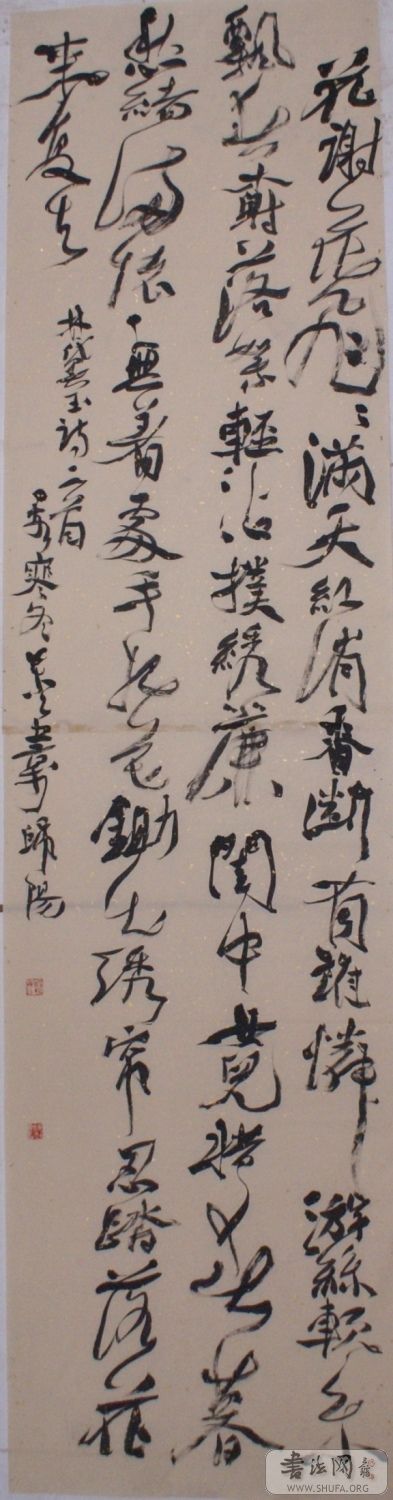 花謝花飛〻滿天紅消香斷有誰憐游絲軟系
飄春榭落絮輕沾撲綉簾閨中女兒惜春暮
愁緒滿懷無着處手把花鋤出綉帘忍踏落花
來复去
林黛玉詩二首
寒冬 書 歸陽
書法网
WWW.SHUFA.ORG